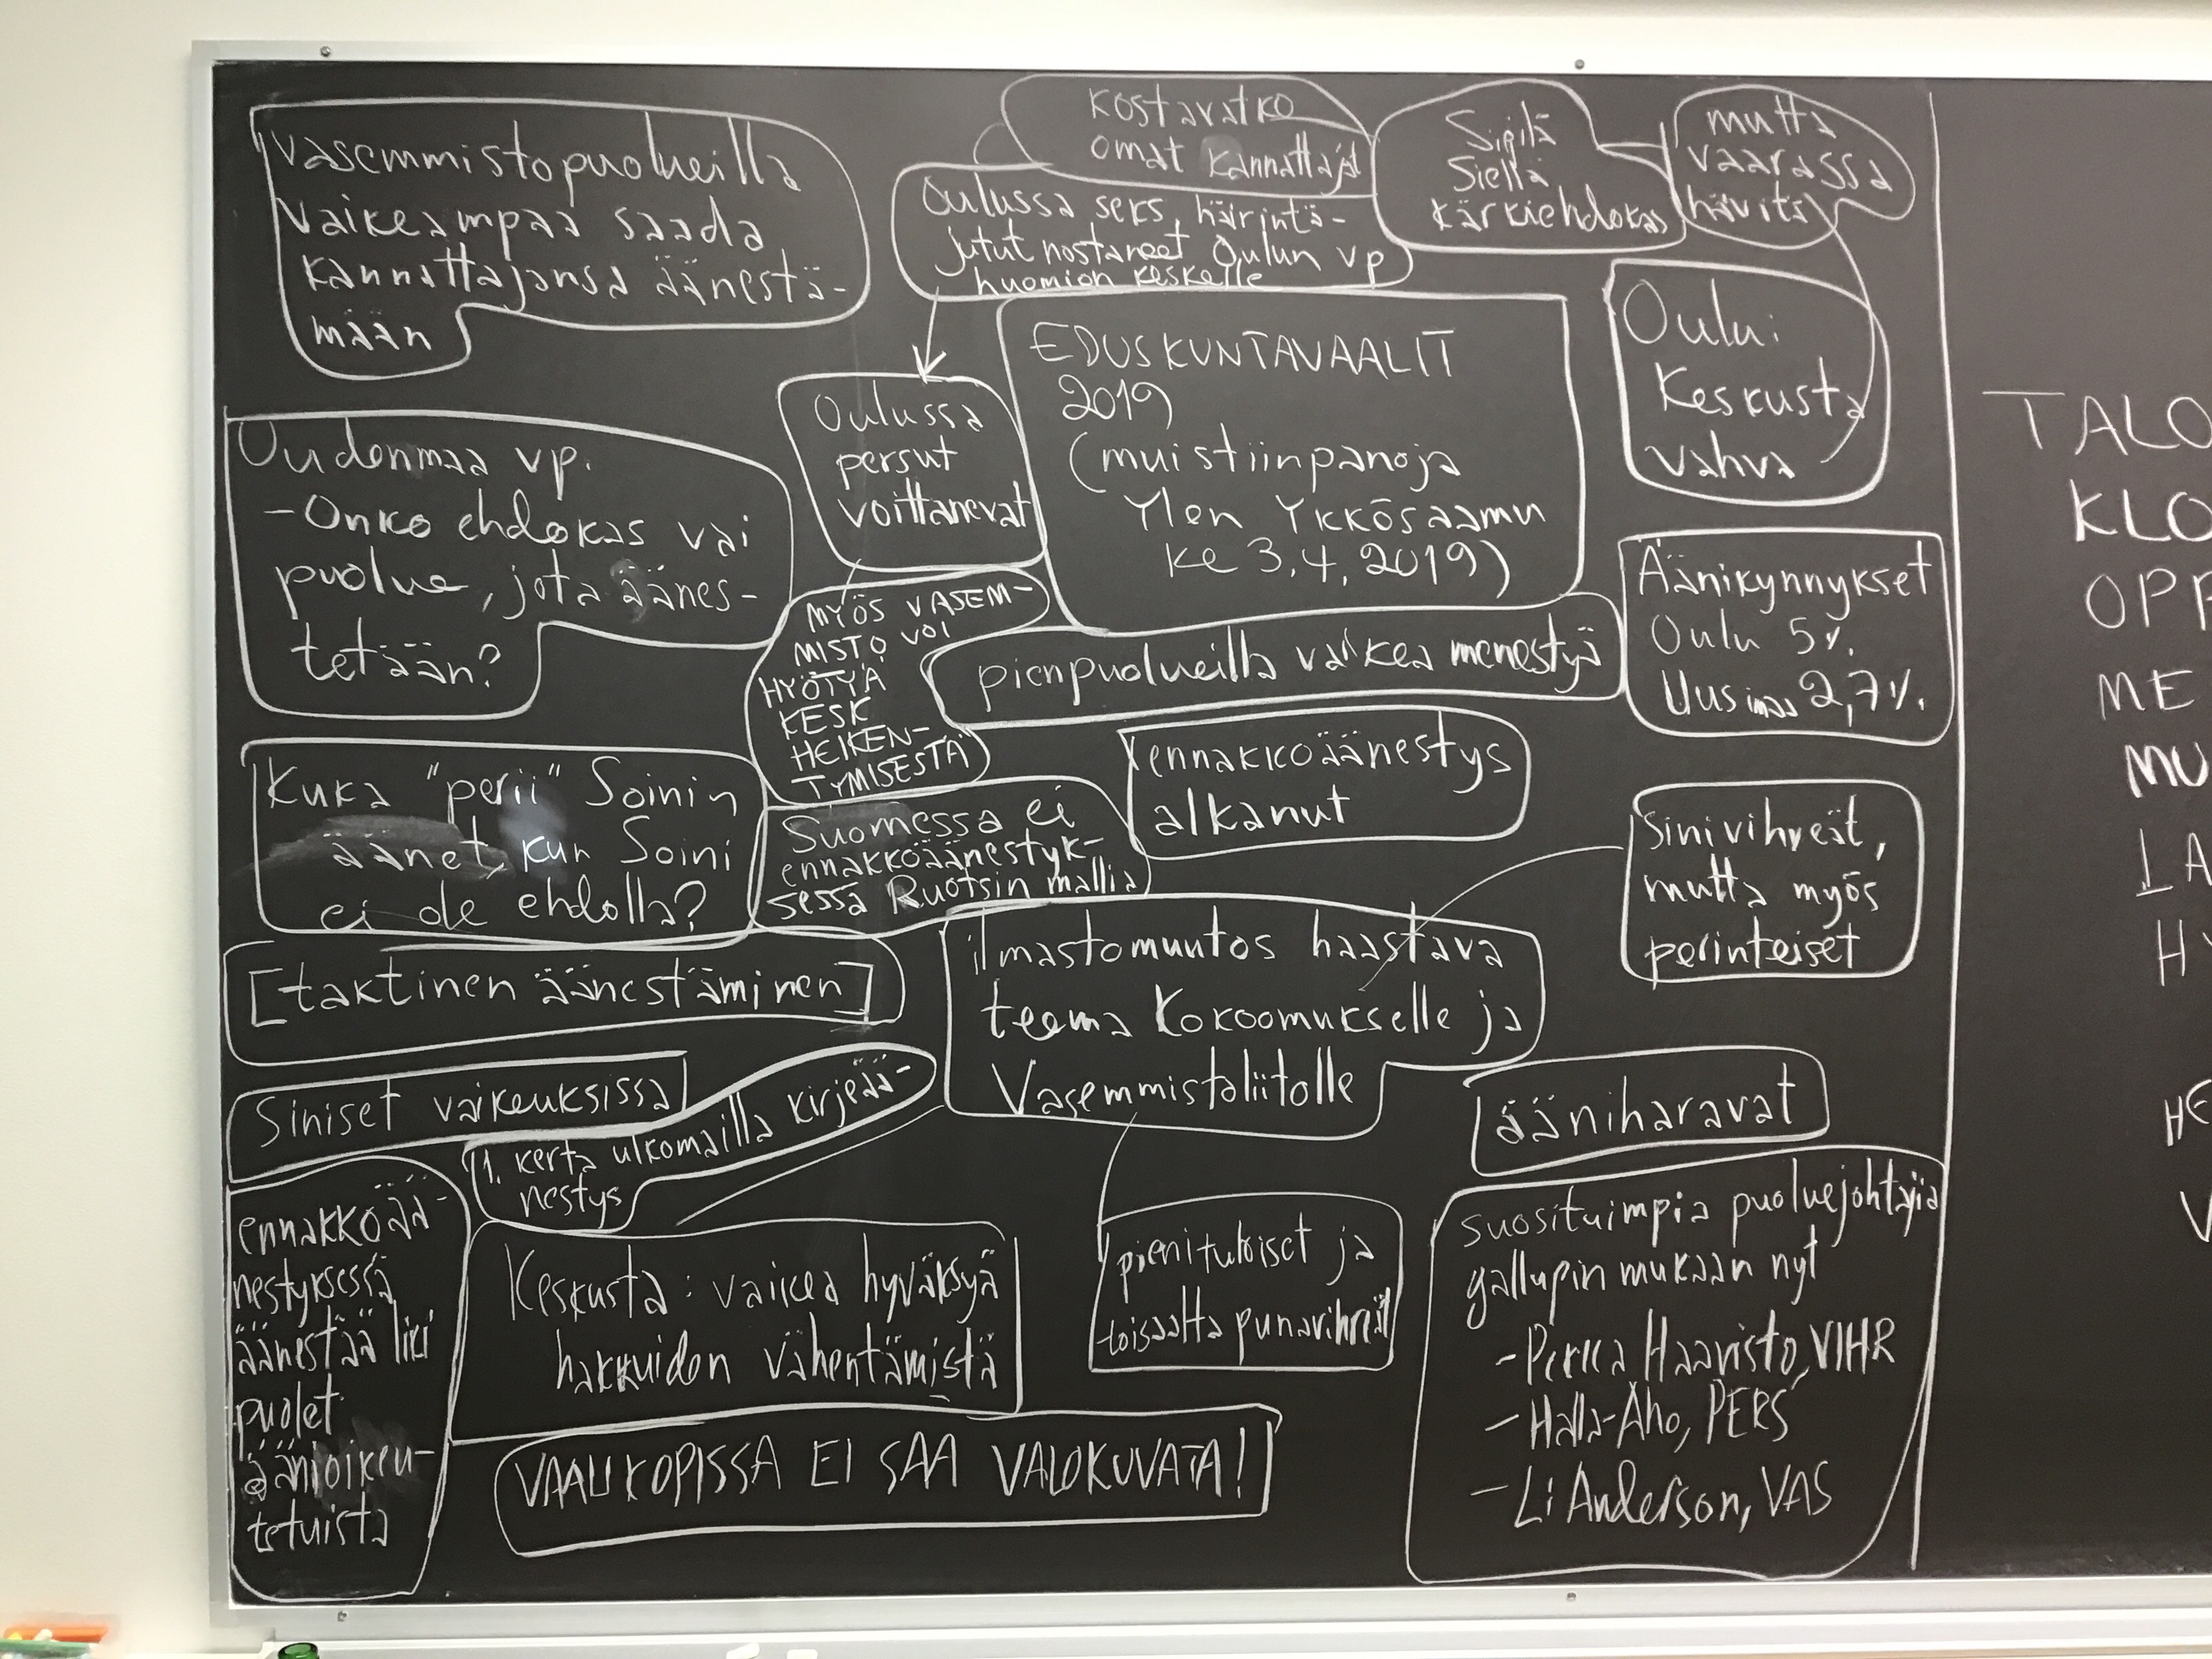 vasemmistopuolueilla
vaikeampaa saada
kannattajansa äänestä-
mään
kostavatko
omat kannattajat
Sipilä
siellä
kärkiehdokas
mutta
vaarassa
hävitä
Oulussa seks. häirintä-
jutut nostaneet Oulun vp
huomion keskelle
EDUSKUNTAVAALIT
2019
(muistiinpanoja
Ylen Ykkösaamu
ke 3.4.2019)
Oulu:
Keskusta
vahva
Oulussa
persut
voittanevat
Uudenmaa vp.
- Onko ehdokas vai
puolue, jota äänes-
tetään?
MYÖS VASEM-
MISTO VOI
HYÖTYÄ
KESK
HEIKEN-
TYMISESTÄ
pienpuolueilla vaikea menestyä
Äänikynnykset
Oulu 5%.
Uusimaa 2,7%.
ennakkoäänestys
alkanut
Kuka "perii" Soinin
äänet, kun Soini
ei ole ehdolla?
Suomessa ei
ennakkoäänestyk-
sessä Ruotsin mallia
Sinivihreät,
mutta myös
perinteiset
[taktinen äänestäminen]
ilmastomuutos haastava
teema Kokoomukselle ja
Vasemmistoliitolle
Siniset vaikeuksissa
1. kerta ulkomailla kirjeää-
nestys
ääniharavat
ennakkoää-
nestyksessä
äänestää liki
puolet
äänioikeu-
tetuista
Keskusta: vaikea hyväksyä
hakkuiden vähentämistä
pienituloiset ja
toisaalta punavihreät
suosituimpia puoluejohtajia
gallupin mukaan nyt
- Pekka Haavisto, VIHR
- Halla-Aho, PERS
- Li Anderson, VAS
VAALIKOPISSA EI SAA VALOKUVATA!
TALO
KLO
OPP
ME
MU
LA
HY
HE
V